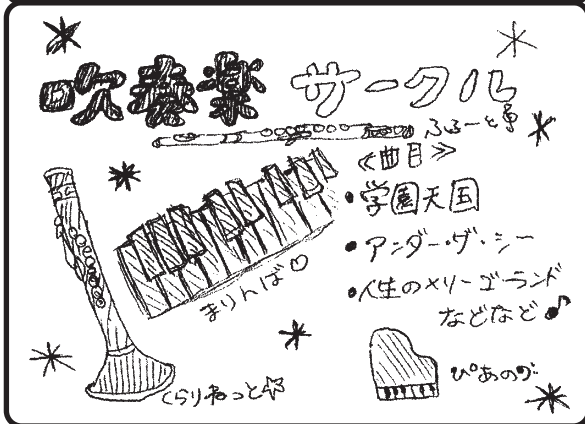 吹奏楽 サークル
ふるーと
≪曲目≫
・学園天国
・アンダー・ザ・シー
・人生のメリーゴーランド
などなど♪
まりんば♡
くらりねっと☆
ぴあの